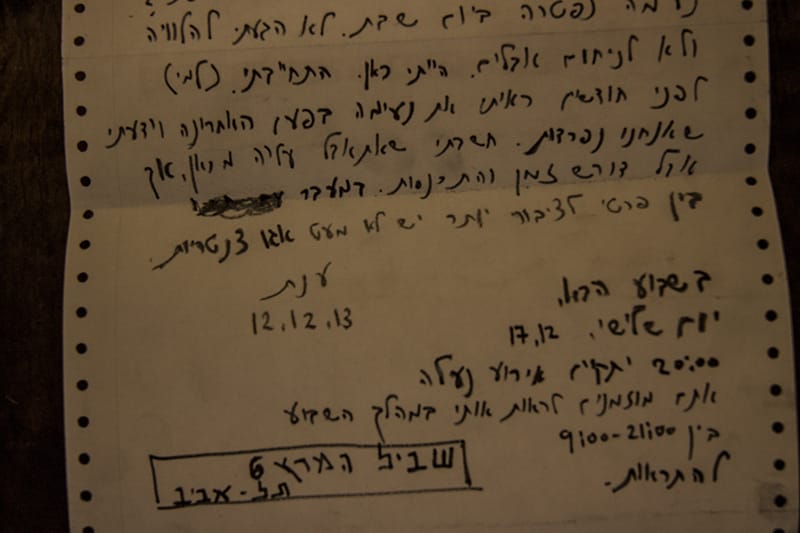 נפטרה ביום שבת. לא הגעתי להלוויה
ולא לניחום אבלים. הייתי כאן. התחייבתי. (למי)
לפני חודשים ראיתי את נעימה בפעם האחרונה וידעתי
שאנחנו נפרדות. חשבתי שאתאבל עליה מכאן, אך
אבל דורש זמן והתכנסות. במעבר
בין פרטי לציבורי יותר יש לא מעט אגו צנטריות.
ענת
12.12.13
בשבוע הבא,
יום שלישי, 17.12
20:00 יתקיים אירוע נעילה
אתם מוזמנים לראות אותי במהלך השבוע
בין 9:00-21:00
להתראות.
שביל המרץ 6
תל-אביב